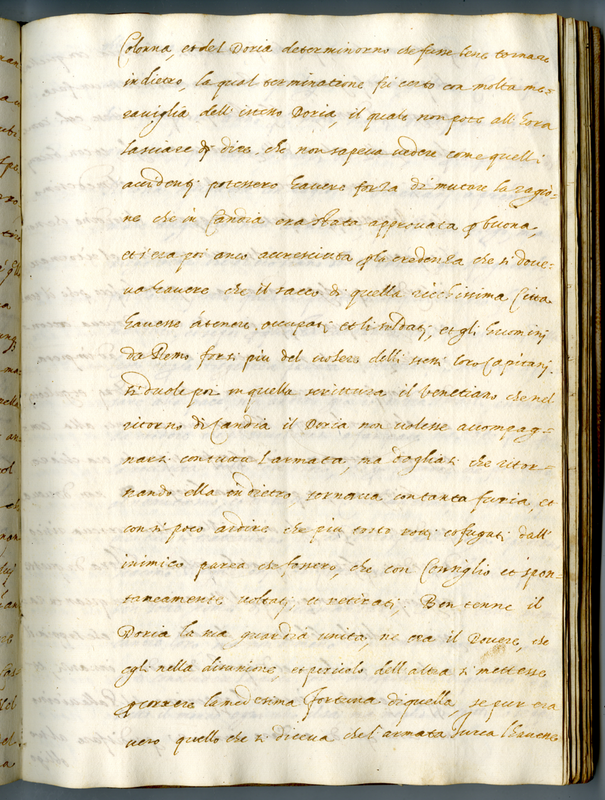 Colonna, et del Doria determinorno che fusse bene tornare
indietro, la qual terminatione fu certo con molta me-
raviglia dell' istesso Doria, il quale non pote all' hora
lasciare di dire che non sapeva vedere come quelli
accidenti potessero havere forza di mutare la ragio-
ne che in Candia era stata approvata p buona,
et s'era poi anco accresciuta p la credenza che si dove-
va havere che il sacco di quella ricchissima Citta
havesse a tenere occupati et li soldati, et gli huomini
da Remo forsi piu del volere delli stessi loro Capitani.
Si duole poi in quella scrittura il Venetiano che nel
ritorno di Candia il Doria non volesse accompag-
narsi con tutta l'armata, ma dogliasi che ritor-
nando ella indietro tornava con tanta furia, et
con si poco ardire che piu tosto rotti et fugati dall'
inimico parea che fossero, che con Consiglio et spon-
taneamente voltati, et retirati, Ben tenne il
Doria la sua guardia unita, ne era il Dovere, che
egli nella disunione, et pericolo dell' altra si mettesse
p correre la medesima fortuna di quella, se pur era
vero quello che si diceva che l'armata Turca l'havesse